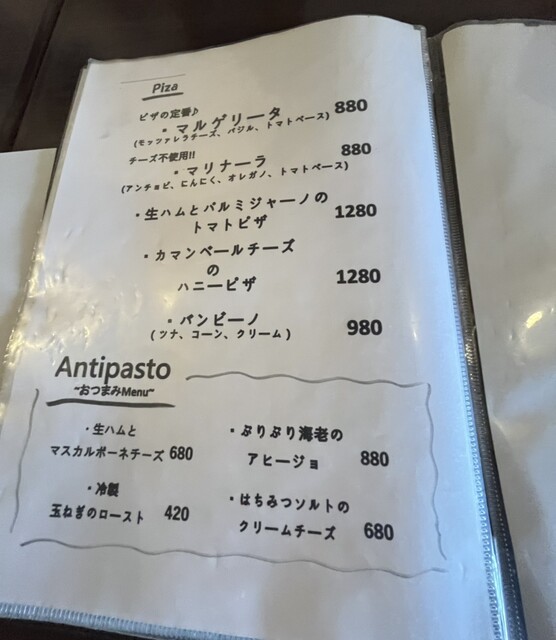 Piza
ピザの定番♪
・マルゲリータ 880
(モッツァレラチーズ、バジル、トマトベース)
チーズ不使用!!
・マリナーラ 880
(アンチョビ、にんにく、オレガノ、トマトベース)
・生ハムとパルミジャーノの
トマトピザ 1280
・カマンベールチーズ
の
ハニーピザ 1280
・バンビーノ 980
(ツナ、コーン、クリーム)
Antipasto
~おつまみMenu~
・生ハムと
マスカルポーネチーズ 680
・冷製
玉ねぎのロースト 420
・ぷりぷり海老の
アヒージョ 880
・はちみつソルトの
クリームチーズ 680